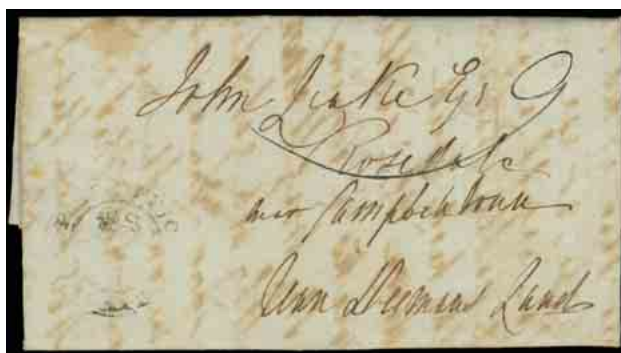 John Leake Esq
Rosedale
near Campbelltown
Van Diemans Land